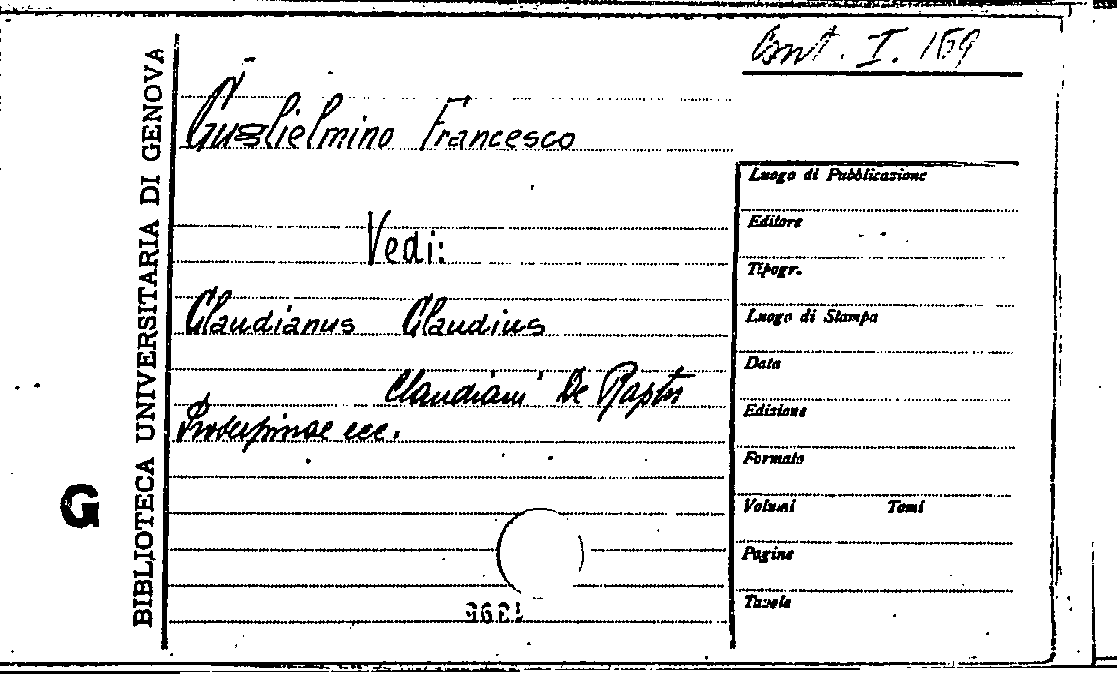 Cont. I. 169
Guglielmino Francesco
Vedi:
Claudianus Claudius
Claudiani De Raptu
Proserpinae ecc.
BIBLIOTECA UNIVERSITARIA DI GENOVA
G
Luogo di Pubblicazione
Editore
Tipogr.
Luogo di Stampa
Data
Edizione
Formato
Volumi Tomi
Pagine
Tavole